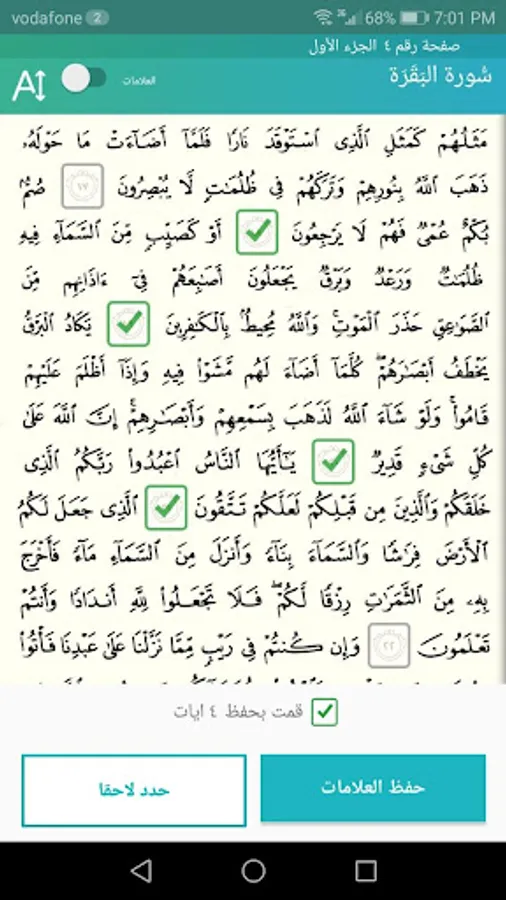 vodafone 2 3G 68% 7:01 PM
صفحة رقم ٤ الجزء الأول
سُّورة البَقَرَة
العلامات
A
مَثَلُهُمْ كَمَثَلِ ٱلَّذِى ٱسْتَوْقَدَ نَارًا فَلَمَّآ أَضَآءَتْ مَا حَوْلَهُۥ
ذَهَبَ ٱللَّهُ بِنُورِهِمْ وَتَرَكَهُمْ فِى ظُلُمَٰتٍ لَّا يُبْصِرُونَ ١٧ صُمٌّۢ
بُكْمٌ عُمْىٌ فَهُمْ لَا يَرْجِعُونَ أَوْ كَصَيِّبٍ مِّنَ ٱلسَّمَآءِ فِيهِ
ظُلُمَٰتٌ وَرَعْدٌ وَبَرْقٌ يَجْعَلُونَ أَصَٰبِعَهُمْ فِىٓ ءَاذَانِهِم مِّنَ
ٱلصَّوَٰعِقِ حَذَرَ ٱلْمَوْتِ ۚ وَٱللَّهُ مُحِيطٌۢ بِٱلْكَٰفِرِينَ يَكَادُ ٱلْبَرْقُ
يَخْطَفُ أَبْصَٰرَهُمْ ۖ كُلَّمَآ أَضَآءَ لَهُم مَّشَوْا۟ فِيهِ وَإِذَآ أَظْلَمَ عَلَيْهِمْ
قَامُوا۟ ۚ وَلَوْ شَآءَ ٱللَّهُ لَذَهَبَ بِسَمْعِهِمْ وَأَبْصَٰرِهِمْ ۚ إِنَّ ٱللَّهَ عَلَىٰ
كُلِّ شَىْءٍ قَدِيرٌ يَٰٓأَيُّهَا ٱلنَّاسُ ٱعْبُدُوا۟ رَبَّكُمُ ٱلَّذِى
خَلَقَكُمْ وَٱلَّذِينَ مِن قَبْلِكُمْ لَعَلَّكُمْ تَتَّقُونَ ٱلَّذِى جَعَلَ لَكُمُ
ٱلْأَرْضَ فِرَٰشًا وَٱلسَّمَآءَ بِنَآءً وَأَنزَلَ مِنَ ٱلسَّمَآءِ مَآءً فَأَخْرَجَ
بِهِۦ مِنَ ٱلثَّمَرَٰتِ رِزْقًا لَّكُمْ ۖ فَلَا تَجْعَلُوا۟ لِلَّهِ أَندَادًا وَأَنتُمْ
تَعْلَمُونَ ٢٢ وَإِن كُنتُمْ فِى رَيْبٍ مِّمَّا نَزَّلْنَا عَلَىٰ عَبْدِنَا فَأْتُوا۟
قمت بحفظ ٤ ايات
حفظ العلامات
حدد لاحقا